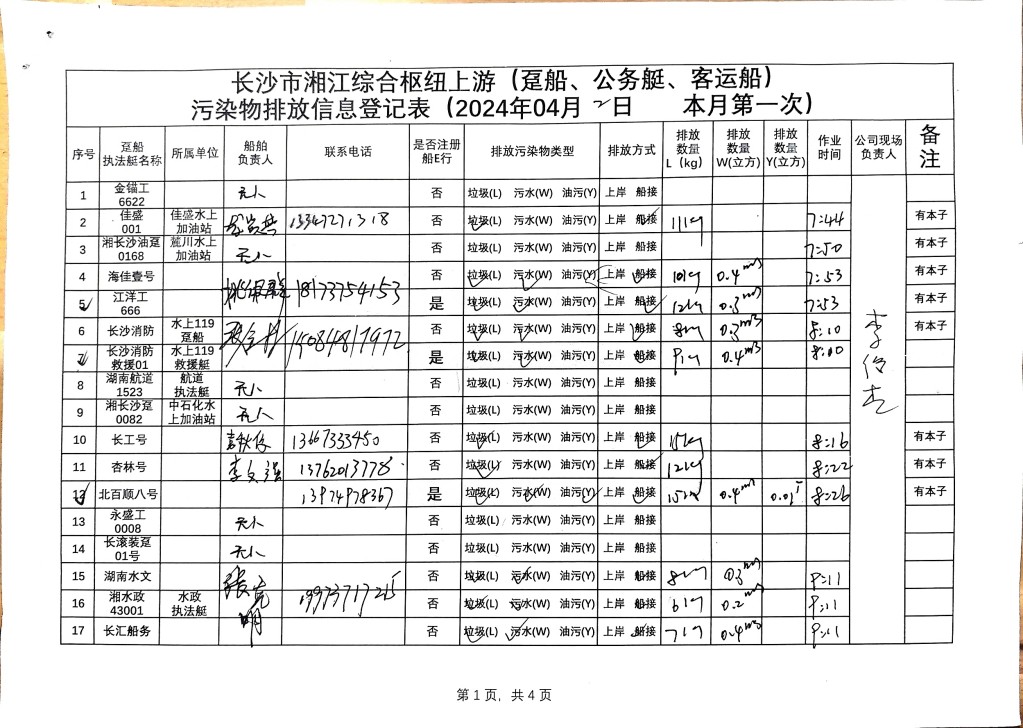 长沙市湘江综合枢纽上游（趸船、公务艇、客运船）
污染物排放信息登记表（2024年04月 2日 本月第一次）
序号 趸船执法艇名称 所属单位 船舶负责人 联系电话 是否注册船E行 排放污染物类型 排放方式 排放数量L（kg） 排放数量W(立方) 排放数量Y(立方) 作业时间 公司现场负责人 备注
1 金锚工6622 无人 否 垃圾(L) 污水(W) 油污(Y) 上岸 船接
2 佳盛001 佳盛水上加油站 13347271318 否 垃圾(L) 污水(W) 油污(Y) 上岸 船接 11kg 7:44 有本子
3 湘长沙油趸0168 麓川水上加油站 无人 否 垃圾(L) 污水(W) 油污(Y) 上岸 船接 7:50 有本子
4 海佳壹号 否 垃圾(L) 污水(W) 油污(Y) 上岸 船接 10kg 0.4m3 7:53 有本子
5 江洋工666 18173754153 是 垃圾(L) 污水(W) 油污(Y) 上岸 船接 12kg 0.3m3 7:53 有本子
6 长沙消防 水上119趸船 否 垃圾(L) 污水(W) 油污(Y) 上岸 船接 8kg 0.3m3 8:10 有本子
7 长沙消防救援01 水上119救援艇 15084817972 是 垃圾(L) 污水(W) 油污(Y) 上岸 船接 9kg 0.4m3 8:10
李
8 湖南航道1523 航道执法艇 无人 否 垃圾(L) 污水(W) 油污(Y) 上岸 船接
9 湘长沙趸0082 中石化水上加油站 无人 否 垃圾(L) 污水(W) 油污(Y) 上岸 船接
10 长工号 13667333450 否 垃圾(L) 污水(W) 油污(Y) 上岸 船接 15kg 8:16 有本子
11 杏林号 李文强 13762013778 否 垃圾(L) 污水(W) 油污(Y) 上岸 船接 12kg 8:22 有本子
12 北百顺八号 13974978367 是 垃圾(L) 污水(W) 油污(Y) 上岸 船接 15kg 0.4m3 0.01 8:26 有本子
13 永盛工0008 无人 否 垃圾(L) 污水(W) 油污(Y) 上岸 船接
14 长滚装趸01号 无人 否 垃圾(L) 污水(W) 油污(Y) 上岸 船接
15 湖南水文 张克明 否 垃圾(L) 污水(W) 油污(Y) 上岸 船接 8kg 0.3m3 9:11
16 湘水政43001 水政执法艇 否 垃圾(L) 污水(W) 油污(Y) 上岸 船接 6kg 0.2m3 9:11
17 长汇船务 否 垃圾(L) 污水(W) 油污(Y) 上岸 船接 7kg 0.4m3 9:11
第 1 页，共 4 页